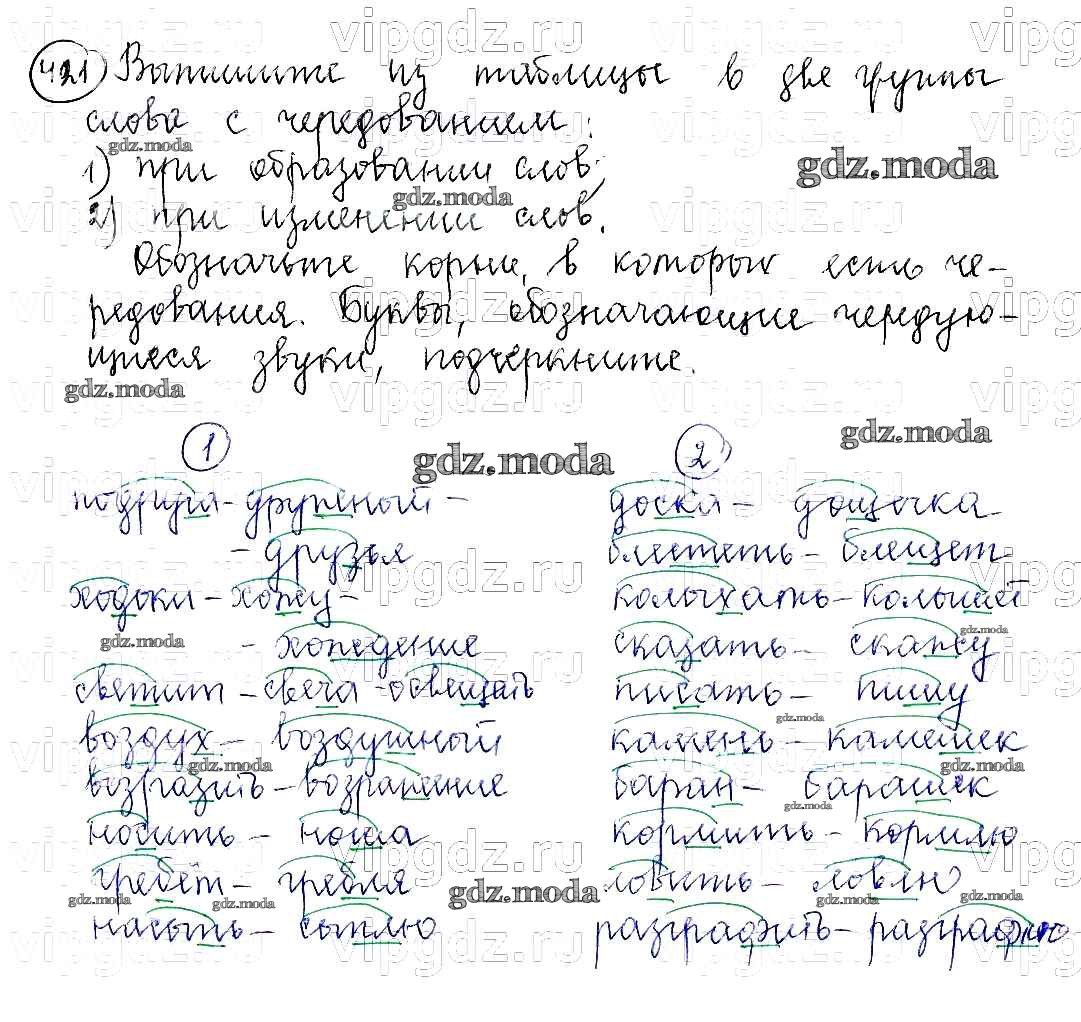 421 Выпишите из таблицы в две группы
слова с чередованием:
1) при образовании слов;
2) при изменении слов.
Обозначьте корни, в которых есть че-
редования. Буквы, обозначающие чередую-
щиеся звуки, подчеркните.
1
2
подруга - дружный -
- друзья
ходоки - хожу -
- хождение
светит - свеча - освещать
воздух - воздушный
возразить - возражение
носить - ноша
гребёт - гребля
насыпь - сыплю
доска - дощечка
блестеть - блещет
колыхать - колышет
сказать - скажу
писать - пишу
камень - камешек
баран - барашек
кормить - кормлю
ловить - ловлю
разграфить - разграфлю
gdz.moda
vipgdz.ru